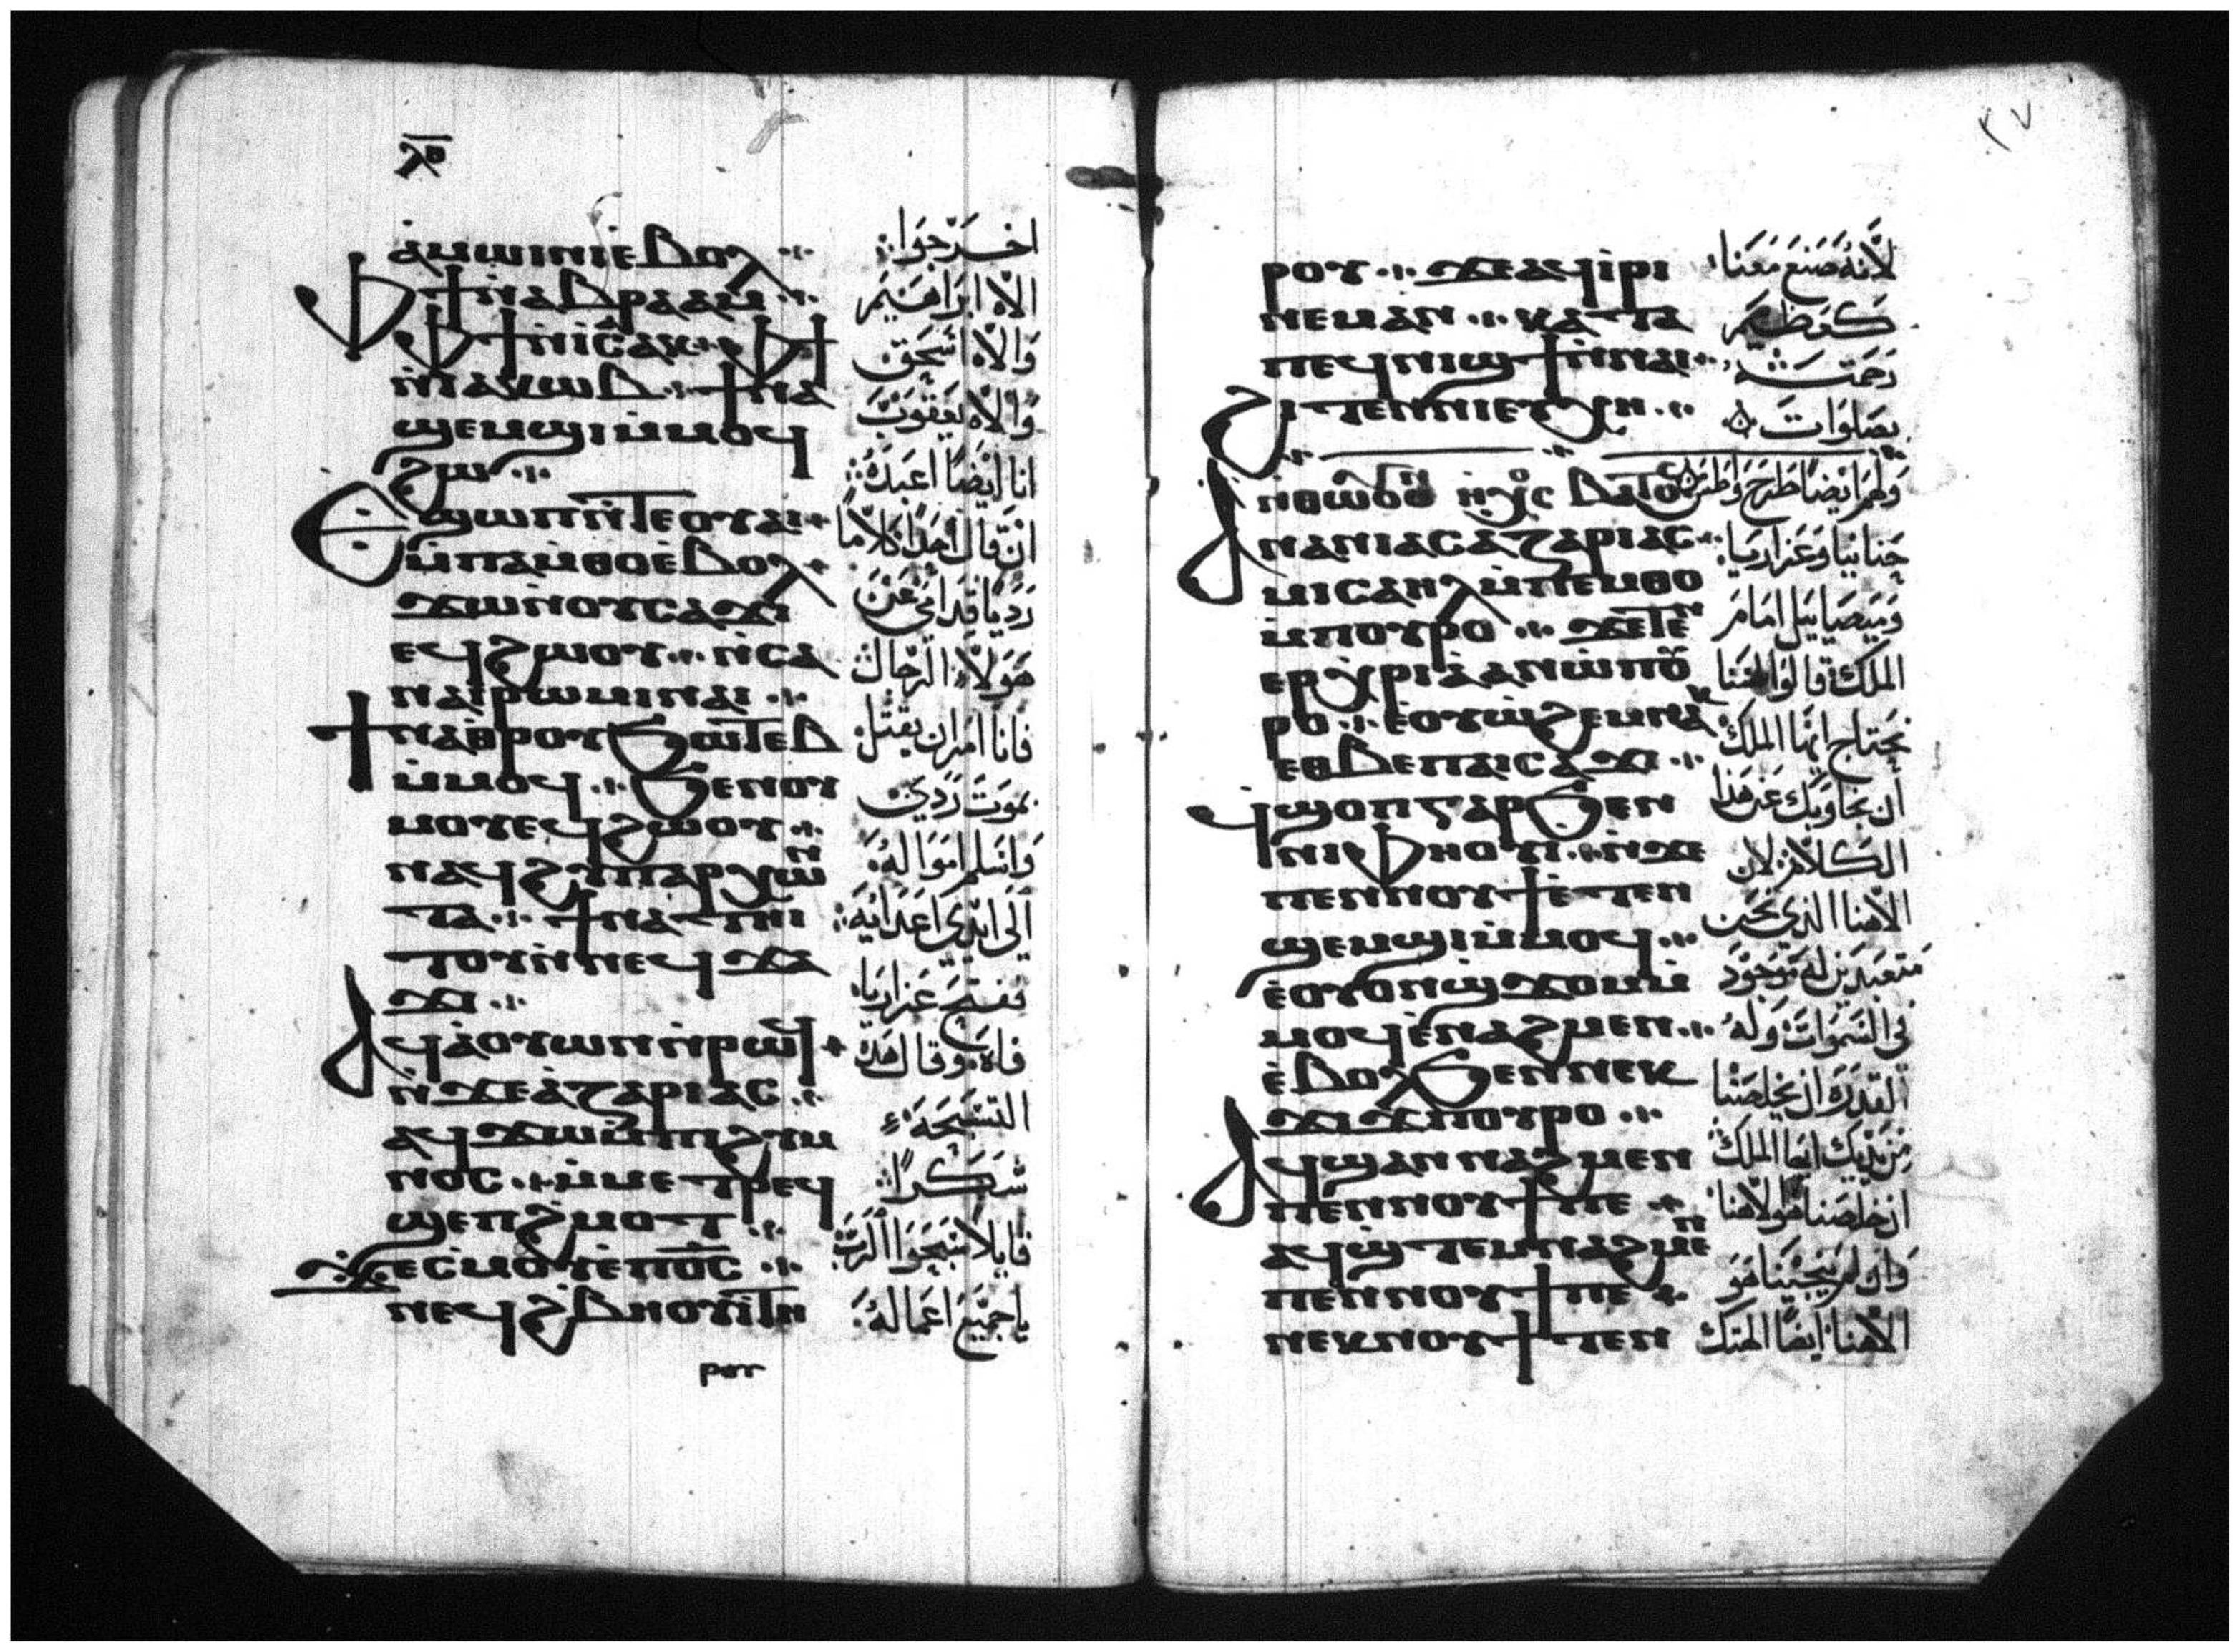 ⲗ̅ⲍ̅
ⲁ̀ⲙⲱⲓⲛⲓⲉ̀ⲃⲟⲗ
ⲫϯⲛ̀ⲁⲃⲣⲁⲁⲙ
ⲫϯⲛ̀ⲓⲥⲁⲕ ⲫϯ
ⲛ̀ⲓⲁⲕⲱⲃ ϯⲛⲁ
ϣⲉⲙϣⲓⲙ̀ⲙⲟϥ
ϩⲱ
ⲉϣⲱⲡⲛ̀ⲧⲉⲟⲩⲁⲓ
ⲙ̀ⲡⲁⲙ̀ⲑⲟⲉ̀ⲃⲟⲗ
ϫⲱⲛ̀ⲟⲩⲥⲁϫⲓ
ⲉϥϩⲱⲟⲩ ⲛ̀ⲥⲁ
ⲛⲁⲓⲣⲱⲙⲓⲛⲁⲓ
ϯⲛⲁⲑⲣⲟⲩϧⲱⲧⲉⲃ
ⲙ̀ⲙⲟϥ ϧⲉⲛⲟⲩ
ⲙⲟⲩⲉϥϩⲱⲟⲩ
ⲛⲁϥϩⲩⲡⲁⲣⲭⲱⲛ
ⲧⲁ ϯⲛⲁⲧⲏⲓ
ⲧⲟⲩⲛ̀ⲛⲉϥϫⲁ
ϫⲓ
ⲁϥⲁ̀ⲟⲩⲱⲛⲛ̀ⲣⲱϥ
ⲛ̀ϫⲉⲁ̀ⲍⲁⲣⲓⲁⲥ
ⲁϥϫⲱⲙ̀ⲡⲓϩⲩⲙ
ⲛⲟⲥ ⲙ̀ⲙⲉⲧⲣⲉϥ
ϣⲉⲡϩ̀ⲙⲟⲧ
ϫⲉⲥ̀ⲙⲟⲩⲉ̀ⲡⲟ̅ⲥ̅
ⲛⲉϥϩ̀ⲃⲏⲟⲩⲓ̀ⲧⲏ
ⲣⲟⲩ
اخرجوا
الاه ابراهيم
والاه اسحق
والاه يعقوب
انا ايضا اعبده
ان قال احدا كلاما
رديا قدامى عن
هولاء الرجال
فانا امر ان يقتل
بموت ردى
واسلم امواله
الى ايدى اعدايه
ففتح عزارياه
فاه وقال هذه
التسبحة
شكرا
قايلا سبحوا الرب
يا جميع اعماله
٣٧
ⲣⲟⲩ ϫⲉⲁϥⲓ̀ⲣⲓ
ⲛⲉⲙⲁⲛ ⲕⲁⲧⲁ
ⲡⲉϥⲛⲓϣϯⲛ̀ⲛⲁⲓ
ϩⲓⲧⲉⲛⲛⲓⲉⲩⲭⲏ
ⲁⲛⲁⲛⲓⲁⲥⲁⲍⲁⲣⲓⲁⲥ
ⲙⲓⲥⲁⲏⲗⲙ̀ⲡⲉⲙⲑⲟ
ⲙ̀ⲡⲟⲩⲣⲟ ϫⲉⲧⲉⲛ
ⲉⲣⲭ̀ⲣⲓⲁ̀ⲁⲛⲱ̀ⲡⲟⲩ
ⲣⲟ ⲉ̀ⲟⲩⲱ̀ϩⲉⲙⲛⲁⲕ
ⲉⲑⲃⲉⲡⲁⲓⲥⲁϫⲓ
ϥϣⲟⲡⲅⲁⲣϧⲉⲛ
ⲛⲓⲫⲏⲟⲩⲓ ⲛ̀ϫⲉ
ⲡⲉⲛⲛⲟⲩϯⲉ̀ⲧⲉⲛ
ϣⲉⲙϣⲓⲙ̀ⲙⲟϥ
ⲉ̀ⲟⲩⲟⲛϣ̀ϫⲟⲙⲙ̀
ⲙⲟϥⲉ̀ⲛⲁϩⲙⲉⲛ
ⲉ̀ⲃⲟⲗϧⲉⲛⲛⲉⲕ
ϫⲓϫⲡⲟⲩⲣⲟ
ⲁϥϣⲁⲛⲛⲁϩⲙⲉⲛ
ⲡⲉⲛⲛⲟⲩϯⲡⲉ
ⲁϥϣ̀ⲧⲉⲙⲛⲁϩⲙⲉⲛ
ⲡⲉⲛⲛⲟⲩϯⲡⲉ
ⲛⲉⲕⲛⲟⲩϯⲧⲉⲛ
لانه صنع معنا
كعظيم
رحمته
بصلوات
ولهم ايضا طرح
حنانيا وعزاريا
وميصاييل امام
الملك قالوا
نحتاج ايها الملك
ان نجاوبك عن هذا
الكلام لان
الاهنا الذى نحن
متعبدين له موجود
فى السموات وله
القدرة ان يخلصنا
من يديك ايها الملك
ان خلصنا هو الاهنا
وان لم ينجينا هو
الاهنا ايضا الهتك